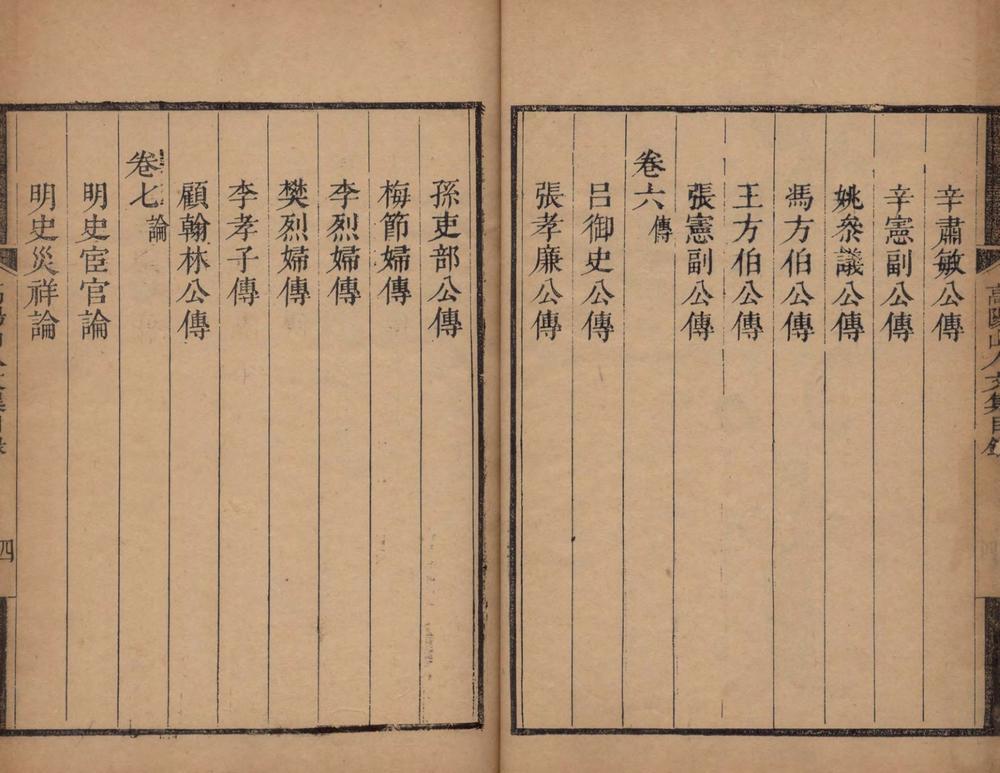 高陽山人文集目錄
辛肅敏公傳
辛憲副公傳
姚叅議公傳
馮方伯公傳
王方伯公傳
張憲副公傳
卷六 傳
呂御史公傳
張孝廉公傳
孫吏部公傳
梅節婦傳
李烈婦傳
樊烈婦傳
李孝子傳
顧翰林公傳
卷七 論
明史宦官論
明史災祥論
四